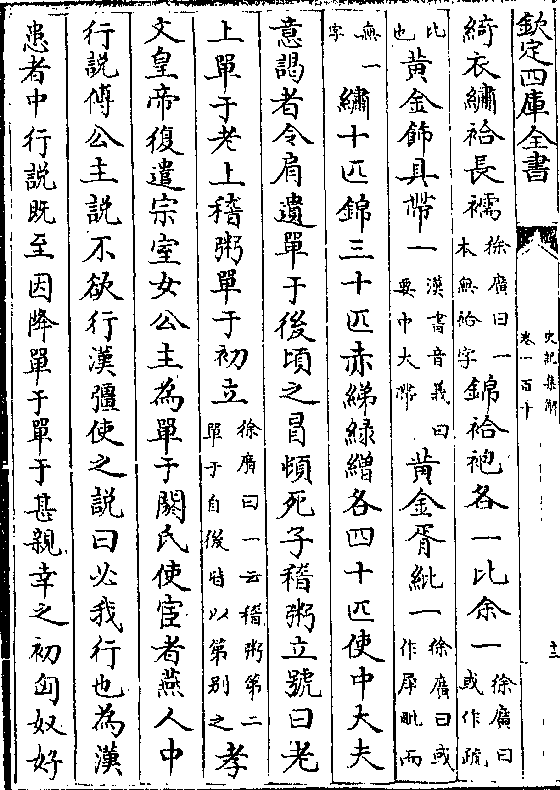 欽定四庫全書
史記集解
卷一百十
十二
綺衣繡袷長襦徐廣曰一本無袷字錦袷袍各一比余一徐廣曰或作疏
比也黃金飾具帶一漢書音義曰要中大帶黃金胥紕一徐廣曰或作犀毗而
無一字繡十匹錦三十匹赤綈緑繒各四十匹使中大夫
意謁者令肩遺單于後頃之冒頓死子稽粥立號曰老
上單于老上稽粥單于初立徐廣曰一云稽粥第二單于自後皆以第别之孝
文皇帝復遣宗室女公主為單于閼氏使宦者燕人中
行說傅公主說不欲行漢彊使之說曰必我行也為漢
患者中行說既至因降單于單于甚親幸之初匈奴好